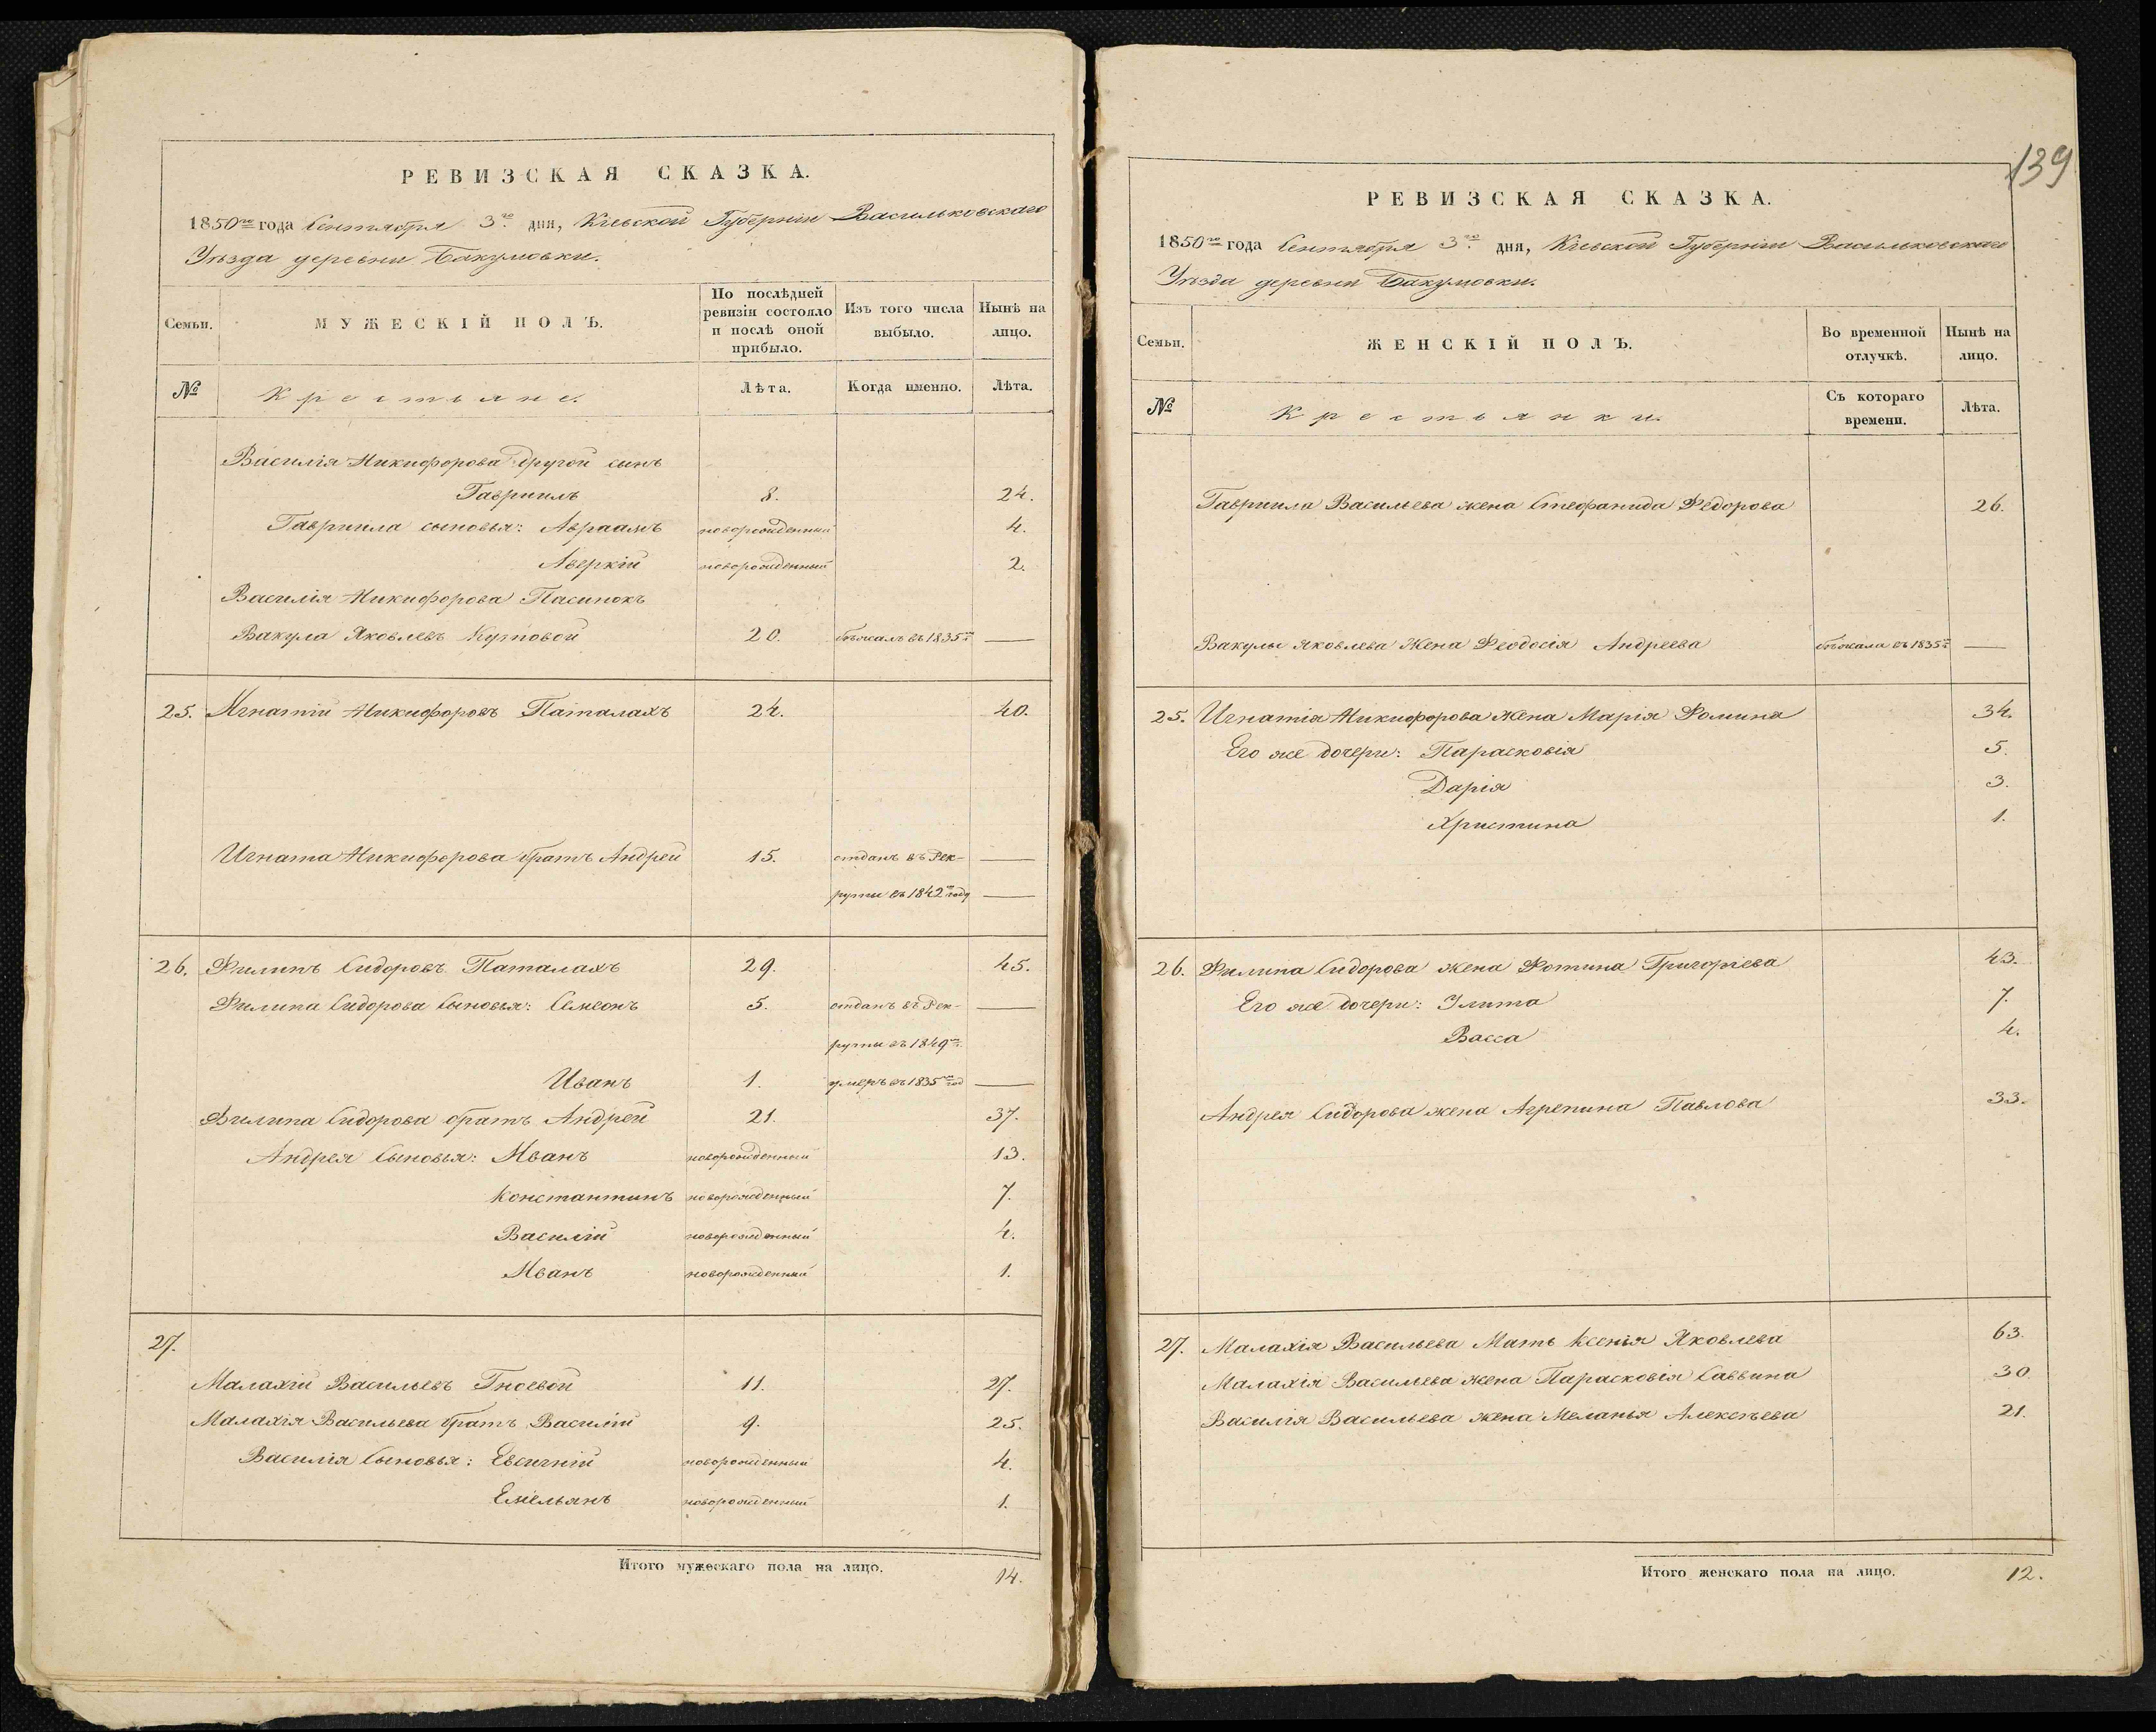 РЕВИЗСКАЯ СКАЗКА.
1850го года Сентября 3го дня, Кіевской Губерніи Васильковскаго
Уѣзда деревни Бакумовки.
Семьи. МУЖЕСКІЙ ПОЛЪ. По послѣдней ревизіи состояло и послѣ оной прибыло. Изъ того числа выбыло. Нынѣ на лицо.
№ Крестьяне. Лѣта. Когда именно. Лѣта.
Василія Никифорова другой сынъ
Гавріилъ 8. 24.
Гавріила сыновья: Авраамъ новорожденный 4.
Аверкій новорожденный 2.
Василія Никифорова Пасинокъ
Вакула Яковлевъ Кутовой 20. бѣжалъ въ 1835го —
25. Игнатій Никифоровъ Паталахъ 24. 40.
Игната Никифорова братъ Андрей 15. отданъ въ Рек- —
руты въ 1842мъ году —
26. Филипъ Сидоровъ Паталахъ 29. 45.
Филипа Сидорова Сыновья: Семеонъ 5. отданъ въ Рек- —
руты въ 1849мъ
Иванъ 1. умеръ въ 1835мъ год —
Филипа Сидорова братъ Андрей 21. 37.
Андрея Сыновья: Иванъ новорожденный 13.
Константинъ новорожденный 7.
Василій новорожденный 4.
Иванъ новорожденный 1.
27.
Малахій Васильевъ Гноевой 11. 27.
Малахія Васильева братъ Василій 9. 25.
Василія Сыновья: Евсигній новорожденный 4.
Емельянъ новорожденный 1.
Итого мужескаго пола на лицо. 14.
139
РЕВИЗСКАЯ СКАЗКА.
1850го года Сентября 3го дня, Кіевской Губерніи Васильковскаго
Уѣзда деревни Бакумовки.
Семьи. ЖЕНСКІЙ ПОЛЪ. Во временной отлучкѣ. Нынѣ на лицо.
№ Крестьянки. Съ котораго времени. Лѣта.
Гавриила Васильева жена Стефанида Федорова 26.
Вакулы Яковлева Жена Феодосія Андреева бѣжала въ 1835го —
25. Игнатія Никифорова жена Марія Фомина 34.
Его же дочери: Парасковія 5.
Дарія 3.
Христина 1.
26. Филипа Сидорова жена Фотина Григоріева 43.
Его же дочери: Улита 7.
Васса 4.
Андрея Сидорова жена Агрепина Павлова 33.
27. Малахія Васильева Мать Ксенія Яковлева 63.
Малахія Васильева жена Парасковія Саввина 30.
Василія Васильева жена Меланья Алексѣева 21.
Итого женскаго пола на лицо. 12.